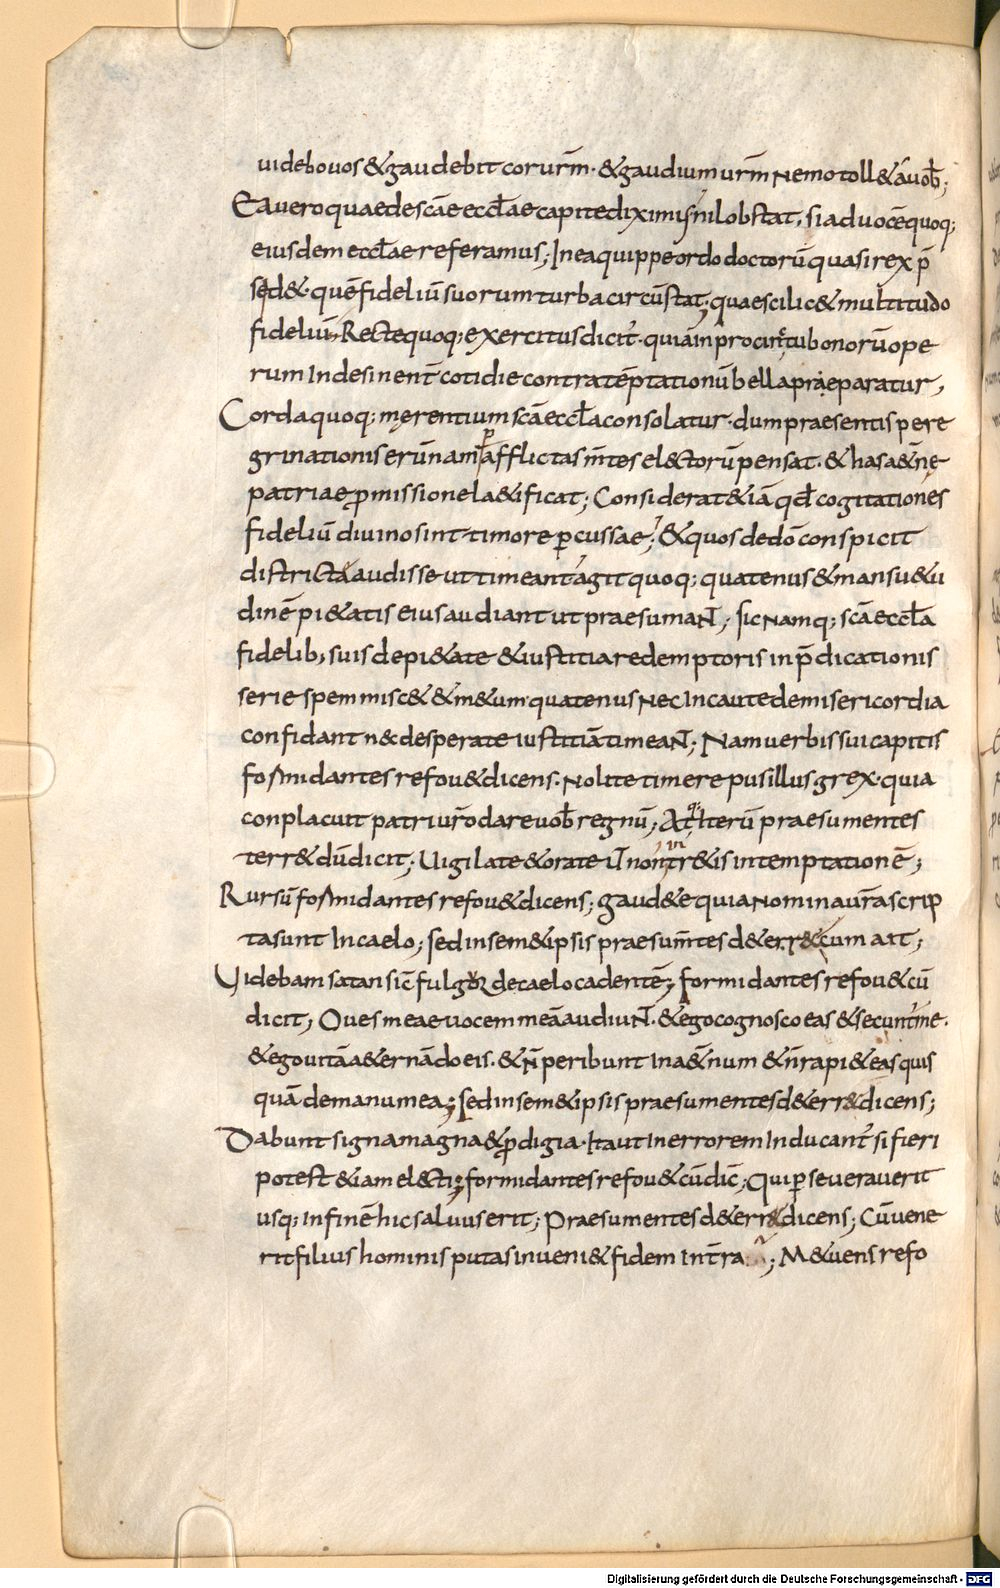 uidebo uos & gaudebit cor ur̄m · & gaudium ur̄m nemo toll& a uob̄;
Ea uero quae de scāe eccl̄ae capite diximus nil obstat, si ad uocē quoq;
eiusdem eccl̄ae referamus; In ea quippe ordo doctorū quasi rex p̄
sed& · quē fideliū suorum turba circūstat; quae scilic& multitudo
fideliū; Recte quoq; exercitus dicit̄ · quia in procinctu bonorū ope
rum Indesinent̄ cotidie contra tēptationū bella praeparatur,
Corda quoq; merentium scā eccl̄a consolatur · dum praesentis pere
grinationis erūnam afflictas m̄tes el&orū pensat · & has a&n̄e
patriae p̄missione la&ificat; Considerat &iā qd̄ cogitationes
fideliū diuino sint timore p̄cussae; & quos de dō conspicit
districta audisse ut timeant agit quoq; quatenus & mansu&u
dinē pi&atis eius audiant ut praesumaNT; sic Namq; scā eccl̄a
fidelib; suis de pi&ate & iustitia redemptoris in p̄dicationis
serie spem misc& & m&um · quatenus Nec Incaute de misericordia
confidant nec desperate iustitiā timeaNT; Nam uerbis sui capitis
formidantes refou& dicens. Nolite timere pusillus grex · quia
conplacuit patri ur̄o dare uob̄ regnū; Atq; Iterū praesumentes
terr& dū dicit; Uigilate & orate ut̄ non intr&is in temptationē;
Rursū formidantes refou& dicens; gaud&e quia Nomina ur̄a scrip
ta sunt In caelo; sed in sem&ipsis praesum̄tes d&err& cum ait;
Uidebam satan sic̄ fulgor de caelo cadentē; formidantes refou& cū
dicit; Oues meae uocem meā audiuNT · & ego cognosco eas & secunt̄ me ·
& ego uitā a&ernā do eis · & n̄ peribunt In a&n̄um & n̄ rapi& eas quis
quā de manu mea; sed in sem&ipsis praesumentes d&err& dicens;
Dabunt signa magna & p̄digia · Ita ut In errorem Inducant̄ si fieri
potest &iam el&i; formidantes refou& cū dic̄; Qui p̄seuerauerit
usq; in finē hic saluus erit; Praesumentes d&err& dicens; Cū uene
rit filius hominis putas inueni& fidem In t̄ra; M&uens refo
Digitalisierung gefördert durch die Deutsche Forschungsgemeinschaft - DFG